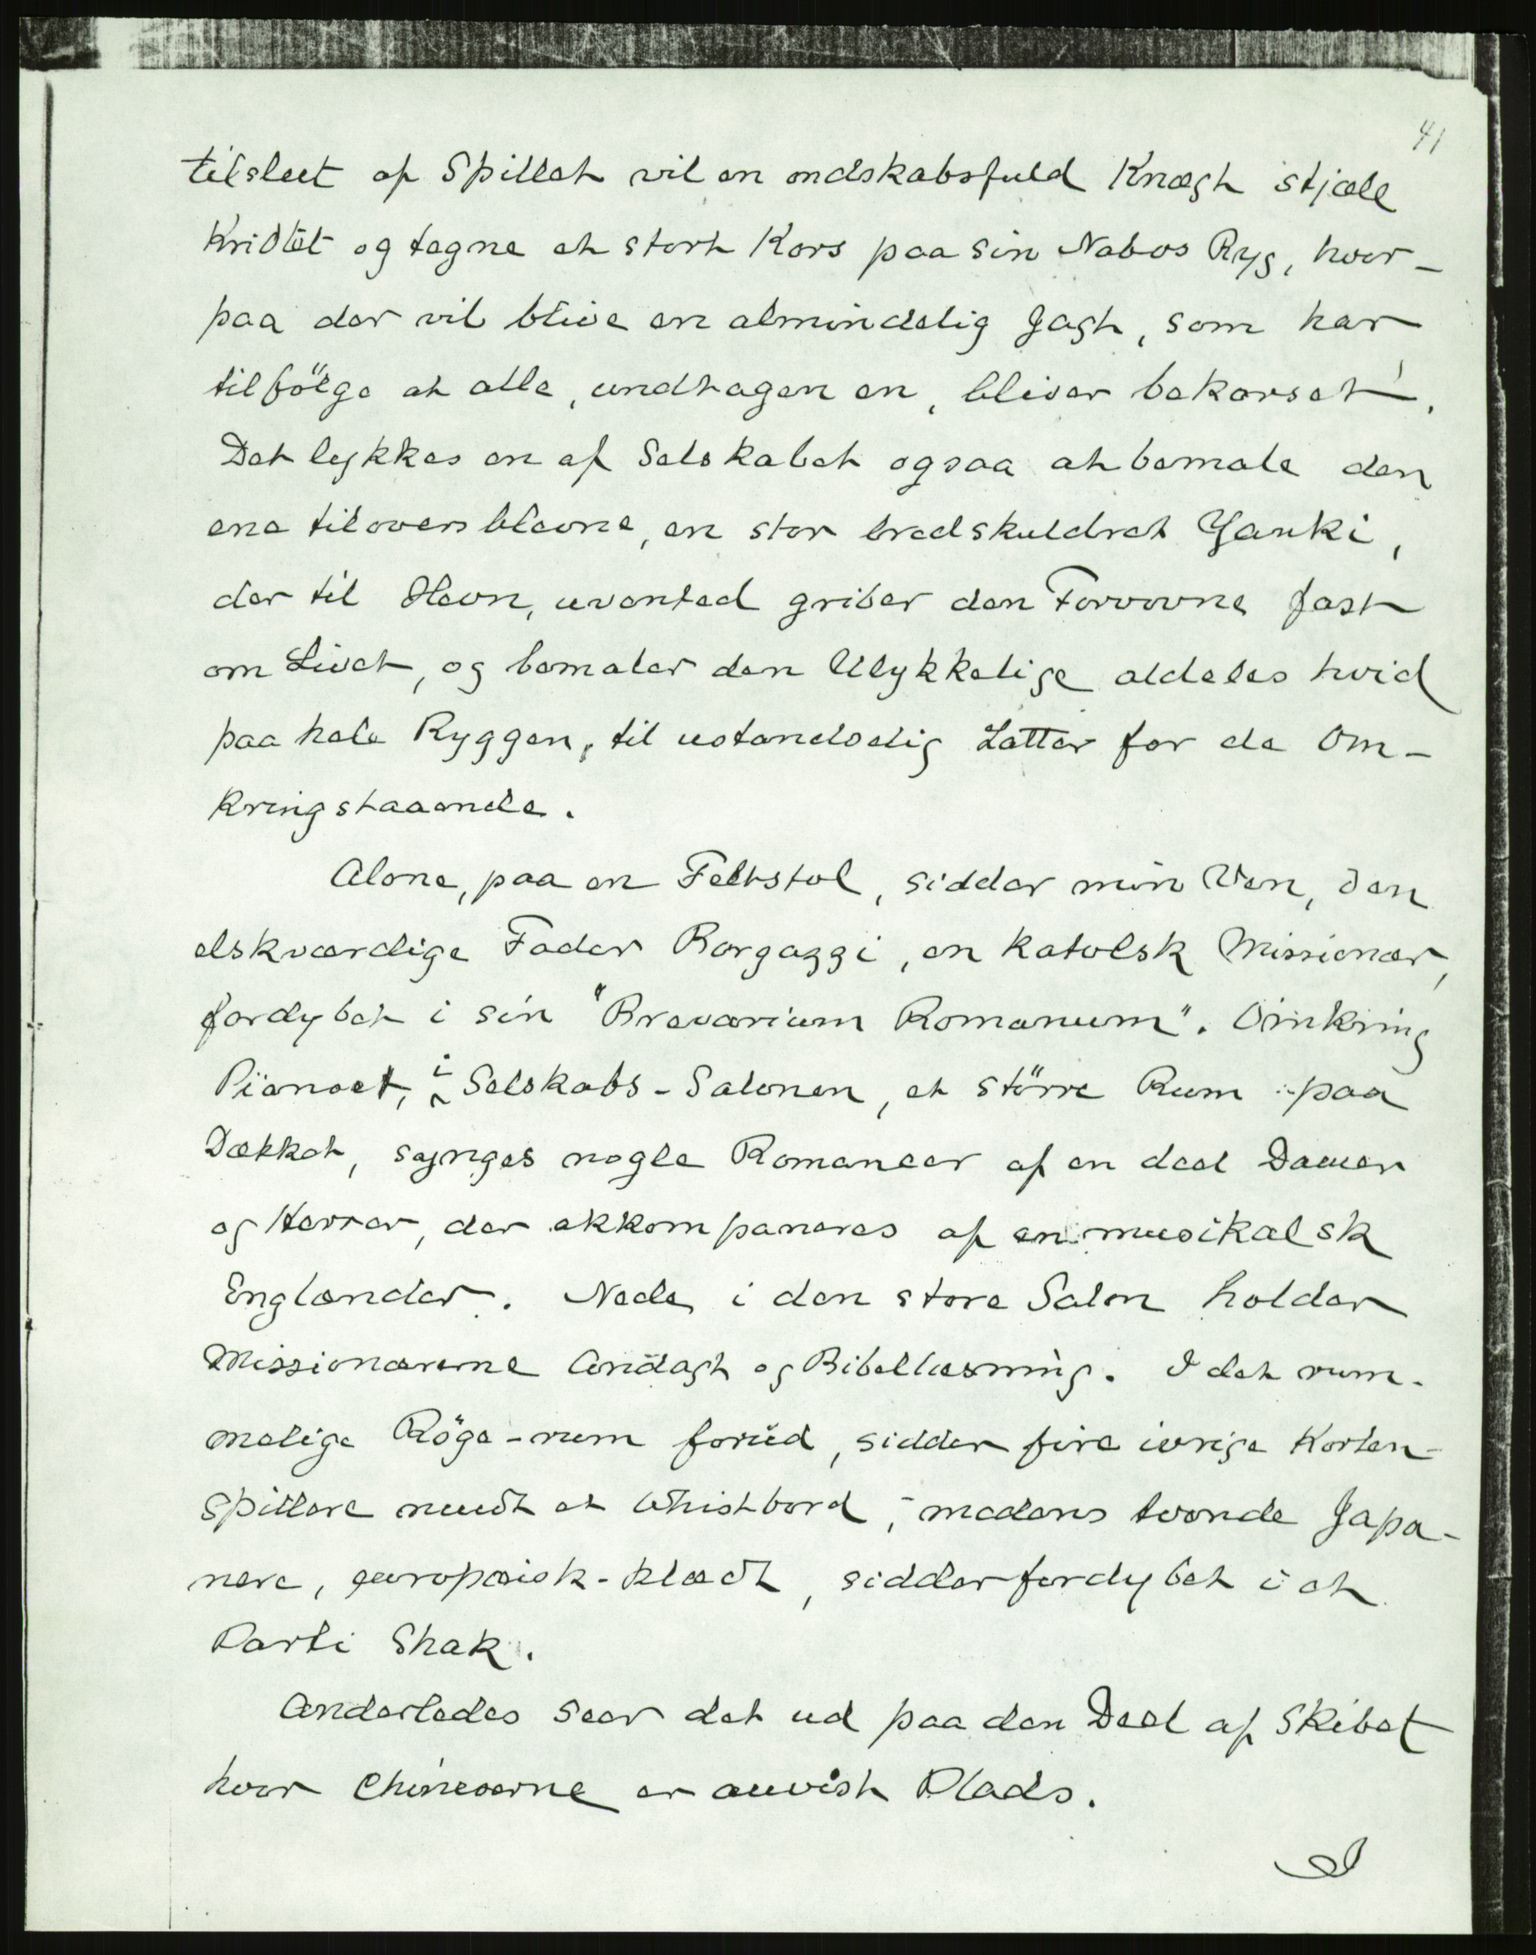 41
tilslut af Spillet vil en ondskabsfuld Knægt stjæle
Kridtet og tegne et stort Kors paa sin Nabos Ryg, hvor-
paa der vil blive en almindelig Jagt, som har
tilfölge at alle, undtagen en, bliver bekorset!.
Det lykkes en af Selskabet ogsaa at bemale den
ene tiloversblevne, en stor bredskuldret Yanki,
der til Hevn, uvented griber den Forvovne fast
om Livet, og bemaler den Ulykkelige aldeles hvid
paa hele Ryggen, til ustandselig Latter for de Om-
kringstaaende.
Alene, paa en Feltstol, sidder min Ven, den
elskværdige Fader Borgazzi, en katolsk Missionær,
fordybet i sin "Brevarium Romanum". Omkring
Pianoet, i Selskabs-Salonen, et större Rum paa
Dækket, synges nogle Romancer af en deel Damer
og Herrer, der akkompaneres af en musikalsk
Englænder. Nede, i den store Salon holder
Missionærerne Andagt og Bibellæsning. I det rum-
melige Röge-rum forud, sidder fire ivrige Korten-
spillere rundt et Whistbord, medens tvende Japa-
nere, europæisk-klædt, sidder fordybet i et
Parti Shak.
Anderledes seer det ud paa den Deel af Skibet
hvor Chineserne er anvist Plads.
I